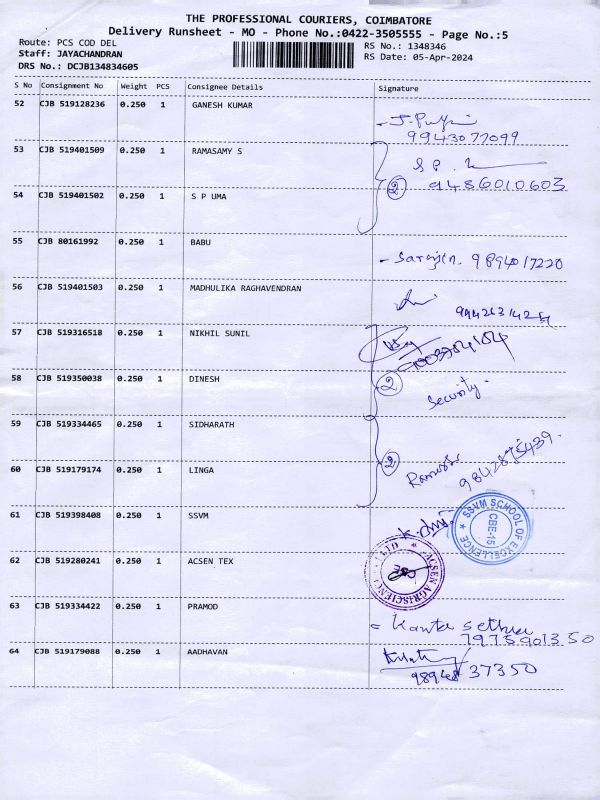 THE PROFESSIONAL COURIERS, COIMBATORE
Delivery Runsheet - MO - Phone No.:0422-3505555 - Page No.:5
Route: PCS COD DEL
RS No.: 1348346
Staff: JAYACHANDRAN
RS Date: 05-Apr-2024
DRS No.: DCJB134834605
S No Consignment No Weight PCS Consignee Details Signature
52 CJB 519128236 0.250 1 GANESH KUMAR
9943077099
53 CJB 519401509 0.250 1 RAMASAMY S
S P
2 9486010603
54 CJB 519401502 0.250 1 S P UMA
55 CJB 80161992 0.250 1 BABU
9894017220
56 CJB 519401503 0.250 1 MADHULIKA RAGHAVENDRAN
57 CJB 519316518 0.250 1 NIKHIL SUNIL
58 CJB 519350038 0.250 1 DINESH
2
Security.
59 CJB 519334465 0.250 1 SIDHARATH
60 CJB 519179174 0.250 1 LINGA
2
61 CJB 519398408 0.250 1 SSVM
SSVM SCHOOL OF EXCELLENCE
CBE-15
62 CJB 519280241 0.250 1 ACSEN TEX
ACSEN AGRISCIENCE LTD
CBE
63 CJB 519334422 0.250 1 PRAMOD
7975901350
64 CJB 519179088 0.250 1 AADHAVAN
37350